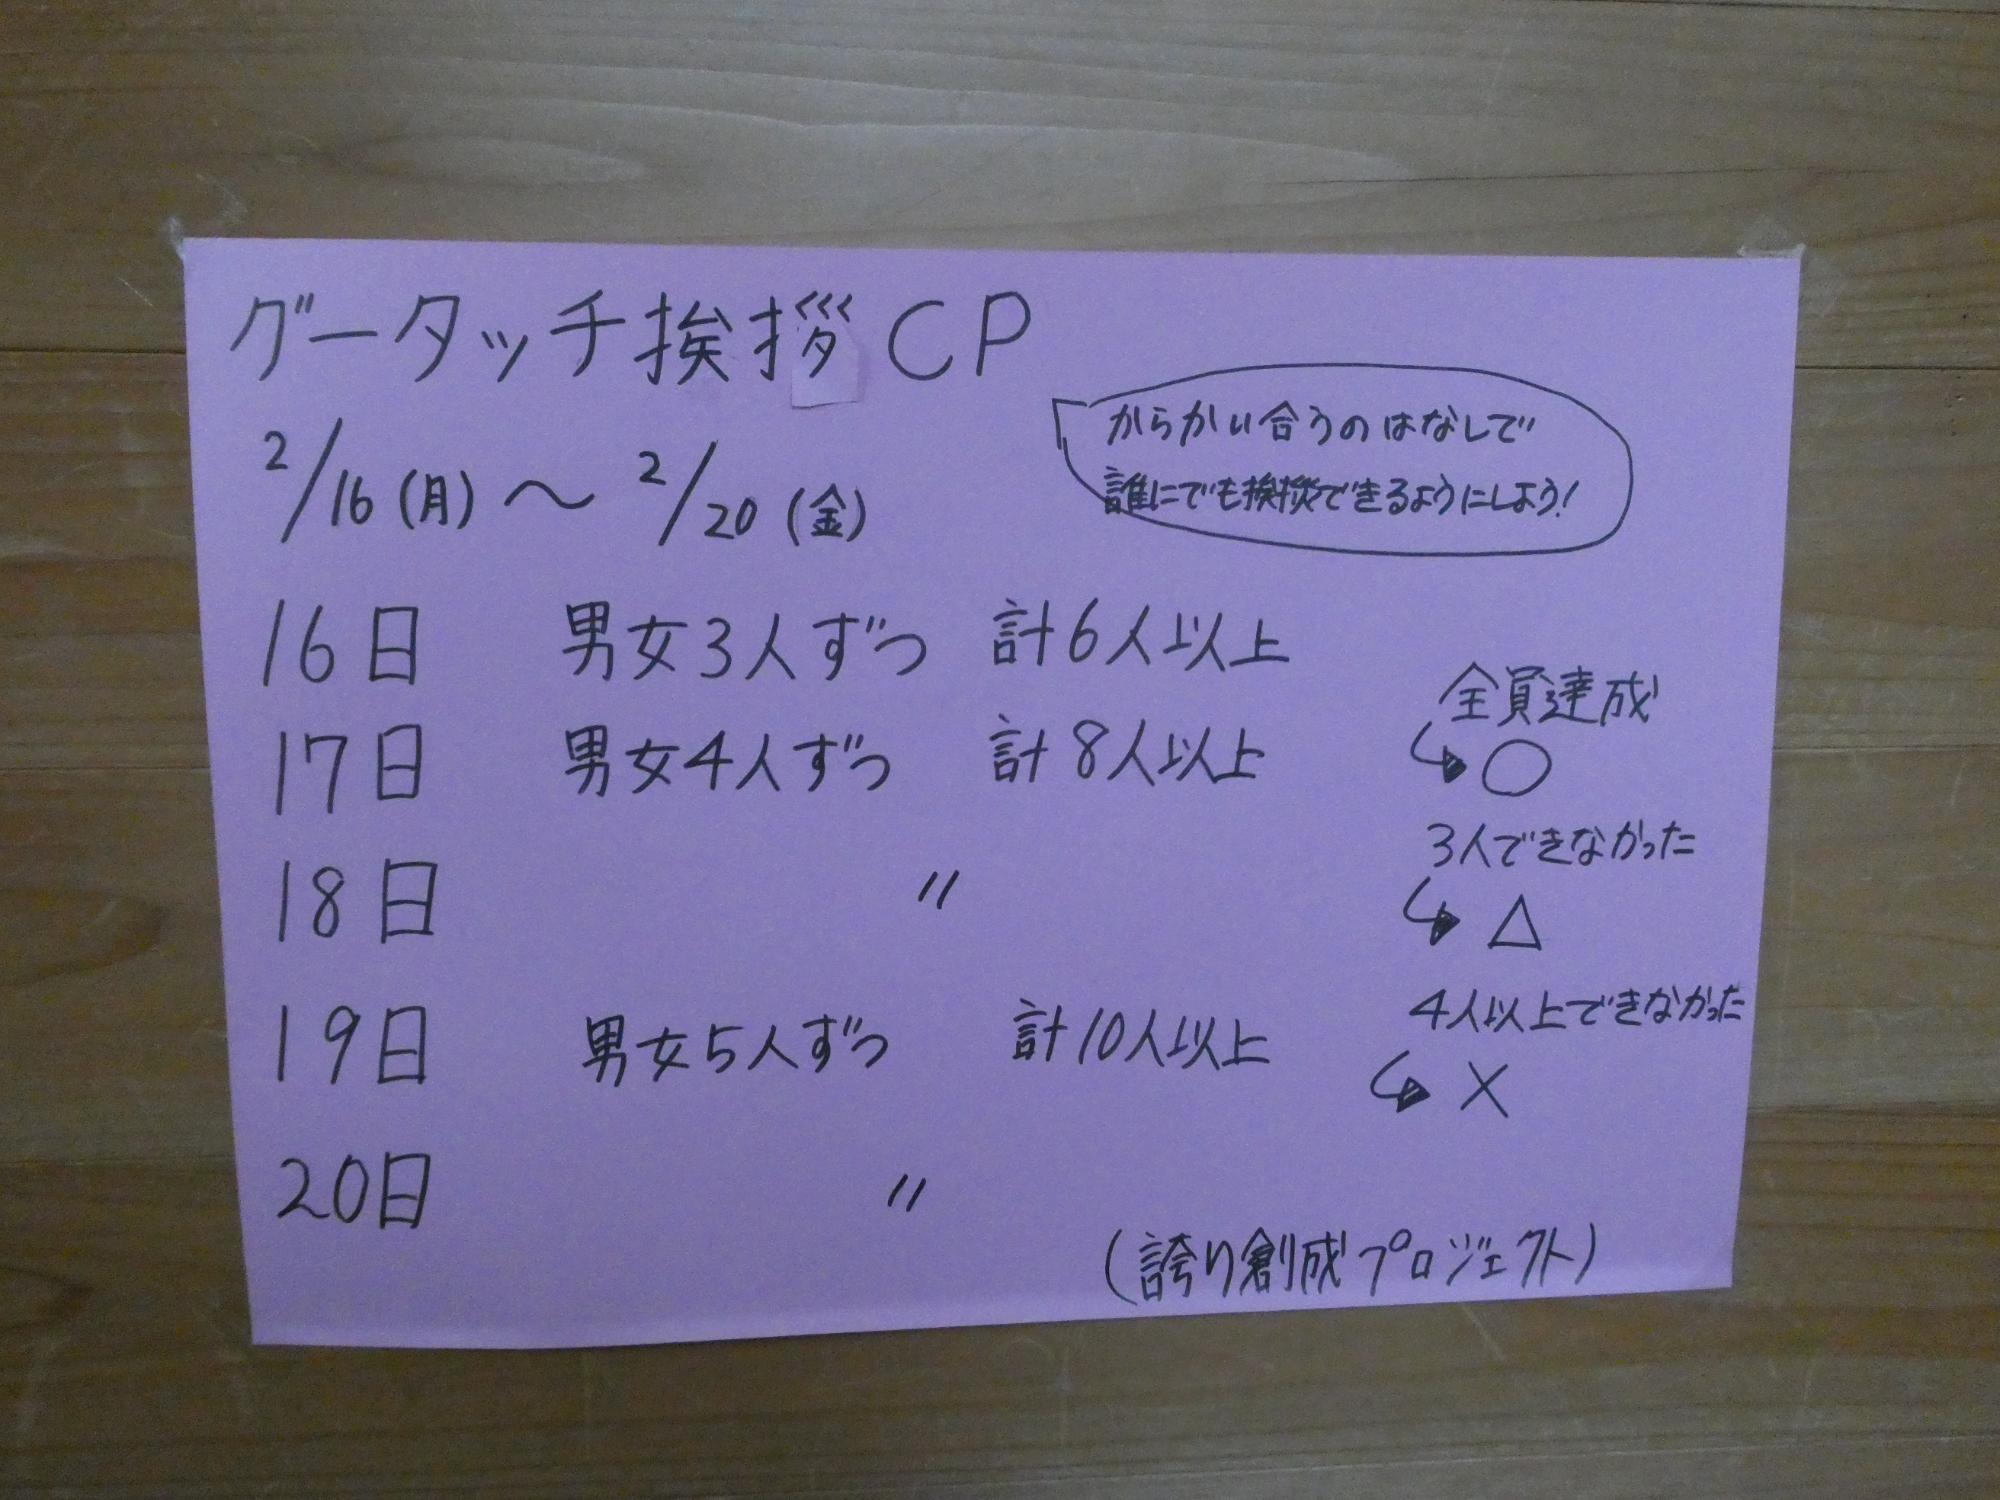 グータッチ挨拶CP
2/16(月)～2/20(金)
からかい合うのはなしで
誰にでも挨拶できるようにしよう!
16日 男女3人ずつ 計6人以上
17日 男女4人ずつ 計8人以上
18日 〃
19日 男女5人ずつ 計10人以上
20日 〃
全員達成
↪○
3人できなかった
↪△
4人以上できなかった
↪×
(誇り創成プロジェクト)